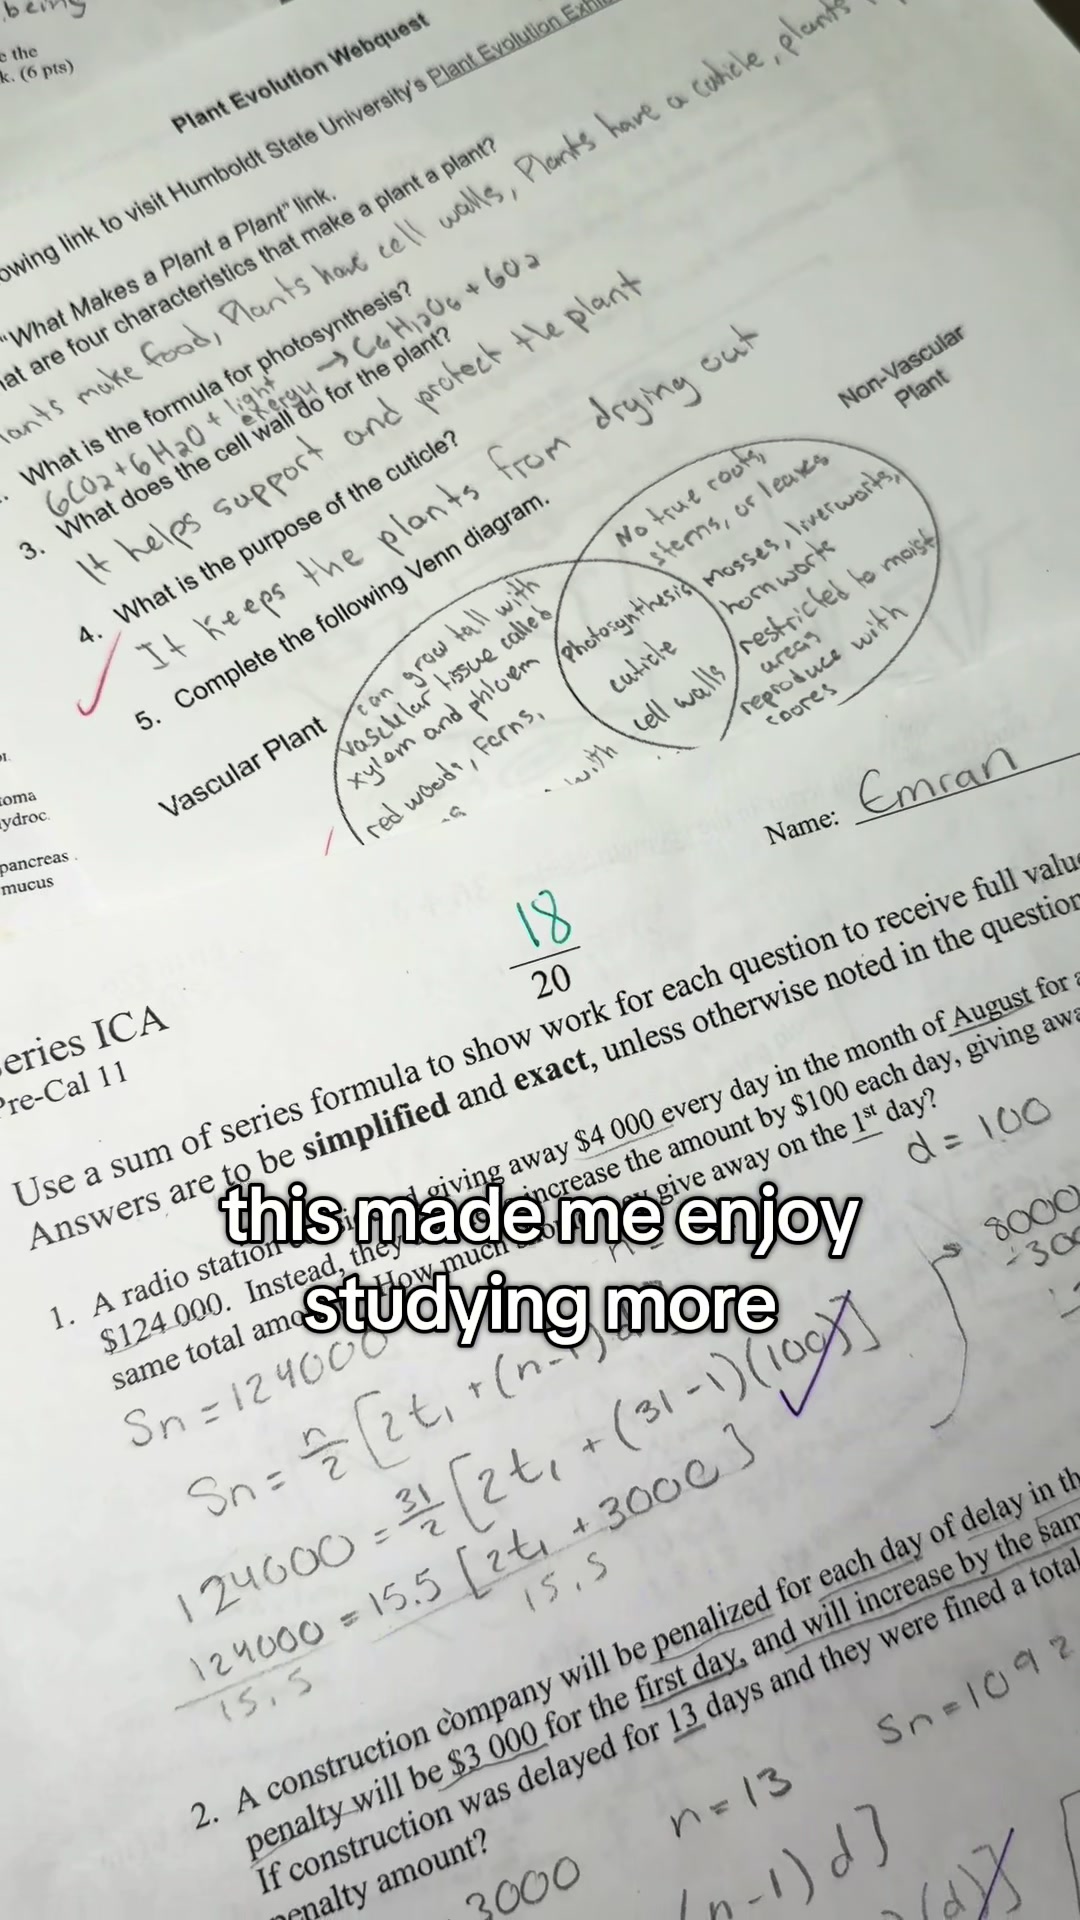 being
e the
k. (6 pts)
Plant Evolution Webquest
owing link to visit Humboldt State University's Plant Evolution
"What Makes a Plant a Plant" link.
hat are four characteristics that make a plant a plant?
lants make food, Plants have cell walls, Plants have a cuticle, plants
What is the formula for photosynthesis?
6CO2 + 6H2O + light energy → C6H12O6 + 6O2
3. What does the cell wall do for the plant?
It helps support and protect the plant
4. What is the purpose of the cuticle?
It keeps the plants from drying out
5. Complete the following Venn diagram.
Vascular Plant
Non-Vascular
Plant
can grow tall with
vascular tissue called
xylem and phloem
redwoods, Ferns,
Photosynthesis
cuticle
cell walls
with
No true roots,
stems, or leaves
mosses, liverworts,
hornworts
restricted to moist
areas
reproduce with
oma
ydroc.
pancreas
mucus
Name: Emran
18
20
eries ICA
Pre-Cal 11
Use a sum of series formula to show work for each question to receive full value
Answers are to be simplified and exact, unless otherwise noted in the question
1. A radio station giving away $4 000 every day in the month of August for a
$124 000. Instead, they increase the amount by $100 each day, giving awa
same total amo How much give away on the 1st day?
this made me enjoy
studying more
d = 100
8000
Sn = 124000
Sn = n/2 [2t1 + (n-1)d
124000 = 31/2 [2t1 + (31-1)(100)]
124000 = 15.5 [2t1 + 3000]
15.5 15.5
2. A construction company will be penalized for each day of delay in th
penalty will be $3 000 for the first day, and will increase by the sam
If construction was delayed for 13 days and they were fined a total
penalty amount?
Sn = 1092
n = 13
3000
(n-1)d]
(d)]